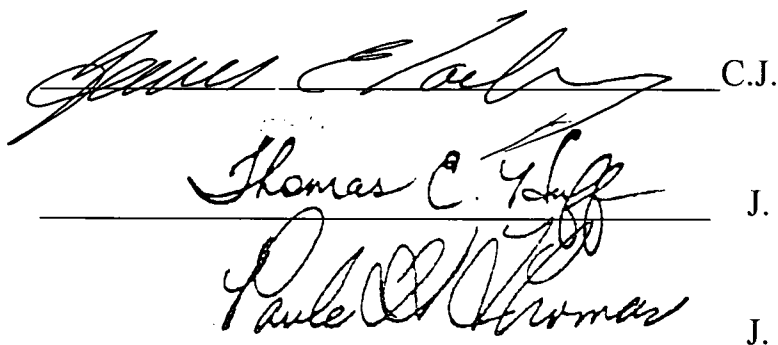 James E C.J.
Thomas E. Huff J.
Paula H Thomas J.